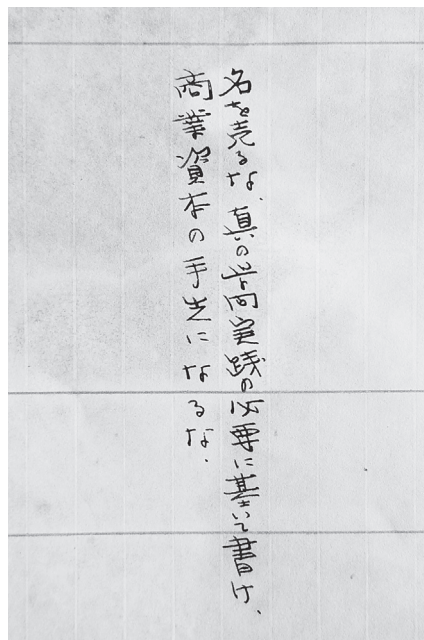 名を売るな、真の学問実践の必要に基いて書け、
商業資本の手先になるな.